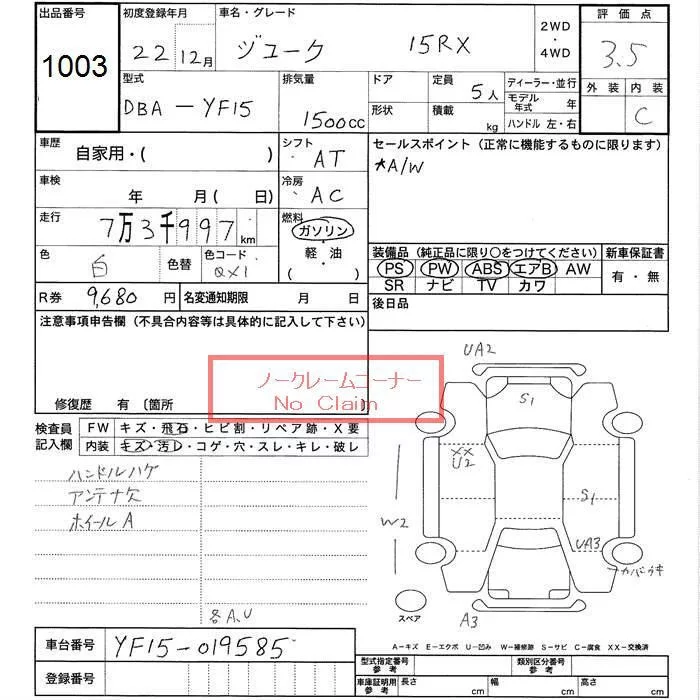 出品番号
1003
初度登録年月
22 12月
車名・グレード
ジューク 15RX
2WD
・
4WD
評価点
3.5
外装 内装
C
型式
DBA-YF15
排気量
1500cc
ドア
形状
定員 5人
積載 kg
ディーラー・並行
モデル年式 年
ハンドル 左・右
車歴
自家用・( )
シフト
AT
車検
年 月( 日)
冷房
AC
走行
7万3千997km
燃料
ガソリン
・
軽・油
( )
色
白
色替
色コード
QX1
セールスポイント (正常に機能するものに限ります)
*A/W
装備品 (純正品に限り〇をつけてください)
PS PW ABS エアB AW
SR ナビ TV カワ
新車保証書
有・無
R券 9,680円
名変通知期限 月 日
後日品
注意事項申告欄 (不具合内容等は具体的に記入して下さい)
修復歴 有 〔箇所
ノークレームコーナー
No Claim
検査員記入欄
FW キズ・飛石・ヒビ割・リペア跡・X要
内装 キズ・汚レ・コゲ・穴・スレ・キレ・破レ
ハンドルハゲ
アンテナ欠
ホイールA
各A,U
UA2
S1
XX
U2
S1
W2
UA3
カバーキ
スペア
A3
車台番号 YF15-019585
登録番号
A-キズ E-エクボ U-凹み W-補修跡 S-サビ C-腐食 XX-交換済
型式指定番号 参考
類別区分番号 参考
車庫証明用 参考
長さ cm
幅 cm
高さ cm